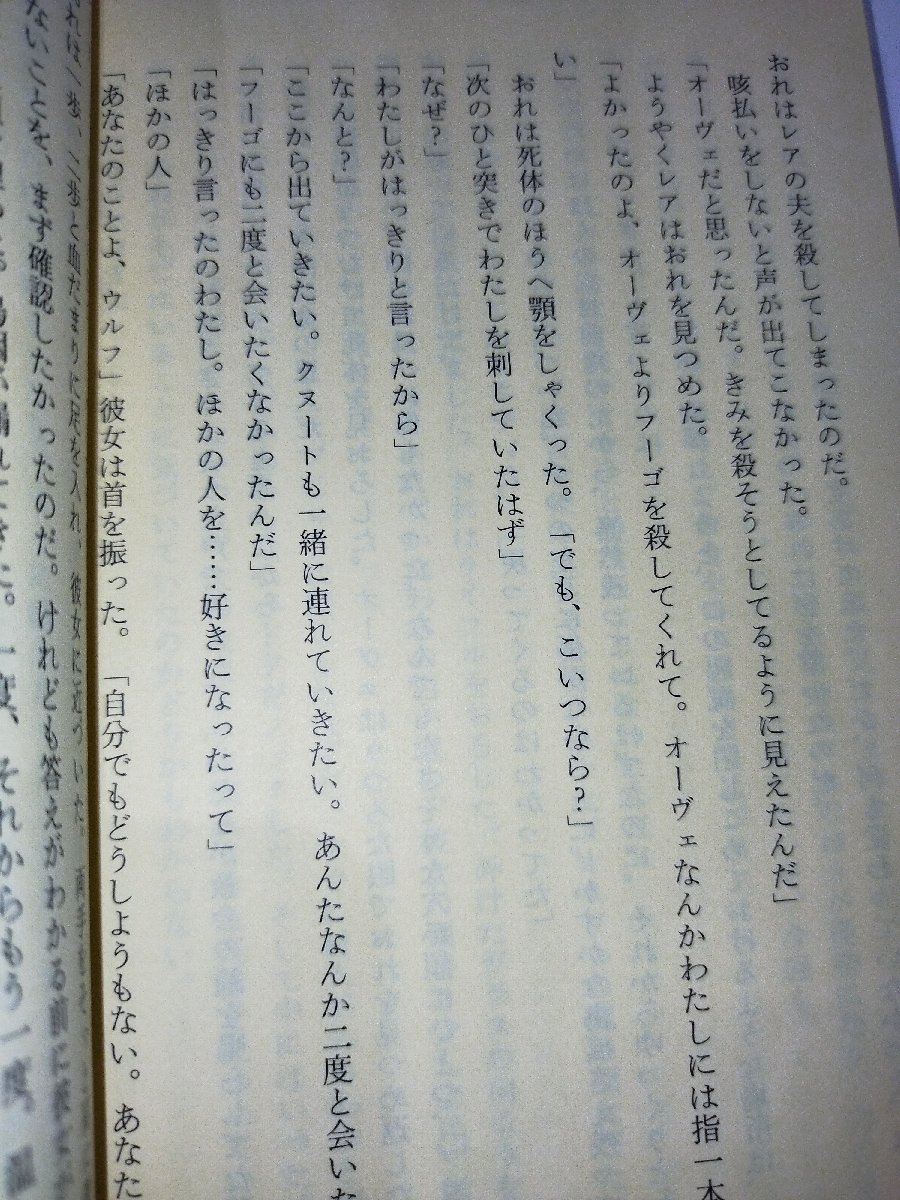 おれはレアの夫を殺してしまったのだ。
咳払いをしないと声が出てこなかった。
「オーヴェだと思ったんだ。きみを殺そうとしてるように見えたんだ」
ようやくレアはおれを見つめた。
「よかったのよ、オーヴェよりフーゴを殺してくれて。オーヴェなんかわたしには指一本
い」
おれは死体のほうへ顎をしゃくった。「でも、こいつなら？」
「次のひと突きでわたしを刺していたはず」
「なぜ？」
「わたしがはっきりと言ったから」
「なんと？」
「ここから出ていきたい。クヌートも一緒に連れていきたい。あんたなんか二度と会いた
「フーゴにも二度と会いたくなかったんだ」
「はっきり言ったのわたし。ほかの人を……好きになったって」
「ほかの人」
「あなたのことよ、ウルフ」彼女は首を振った。「自分でもどうしようもない。あなた
れは一歩、二歩と血だまりに足を入れ、彼女に近づいた。
ないことを、まず確認したかったのだ。けれども答えがわかる前に
一度、それからもう一度